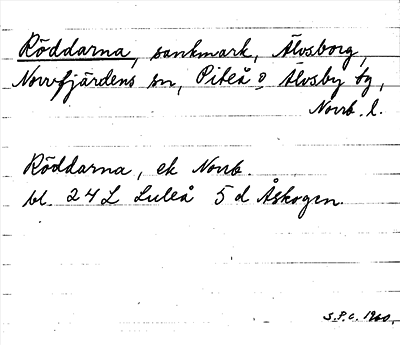 Röddarna, sankmark, Älvsborg,
Norrfjärdens sn, Piteå o. Älvsby tg,
Norrb. l.
Röddarna, ek Norrb.
bl. 24 L Luleå 5 d Åskogen.
S.P.C. 1960.